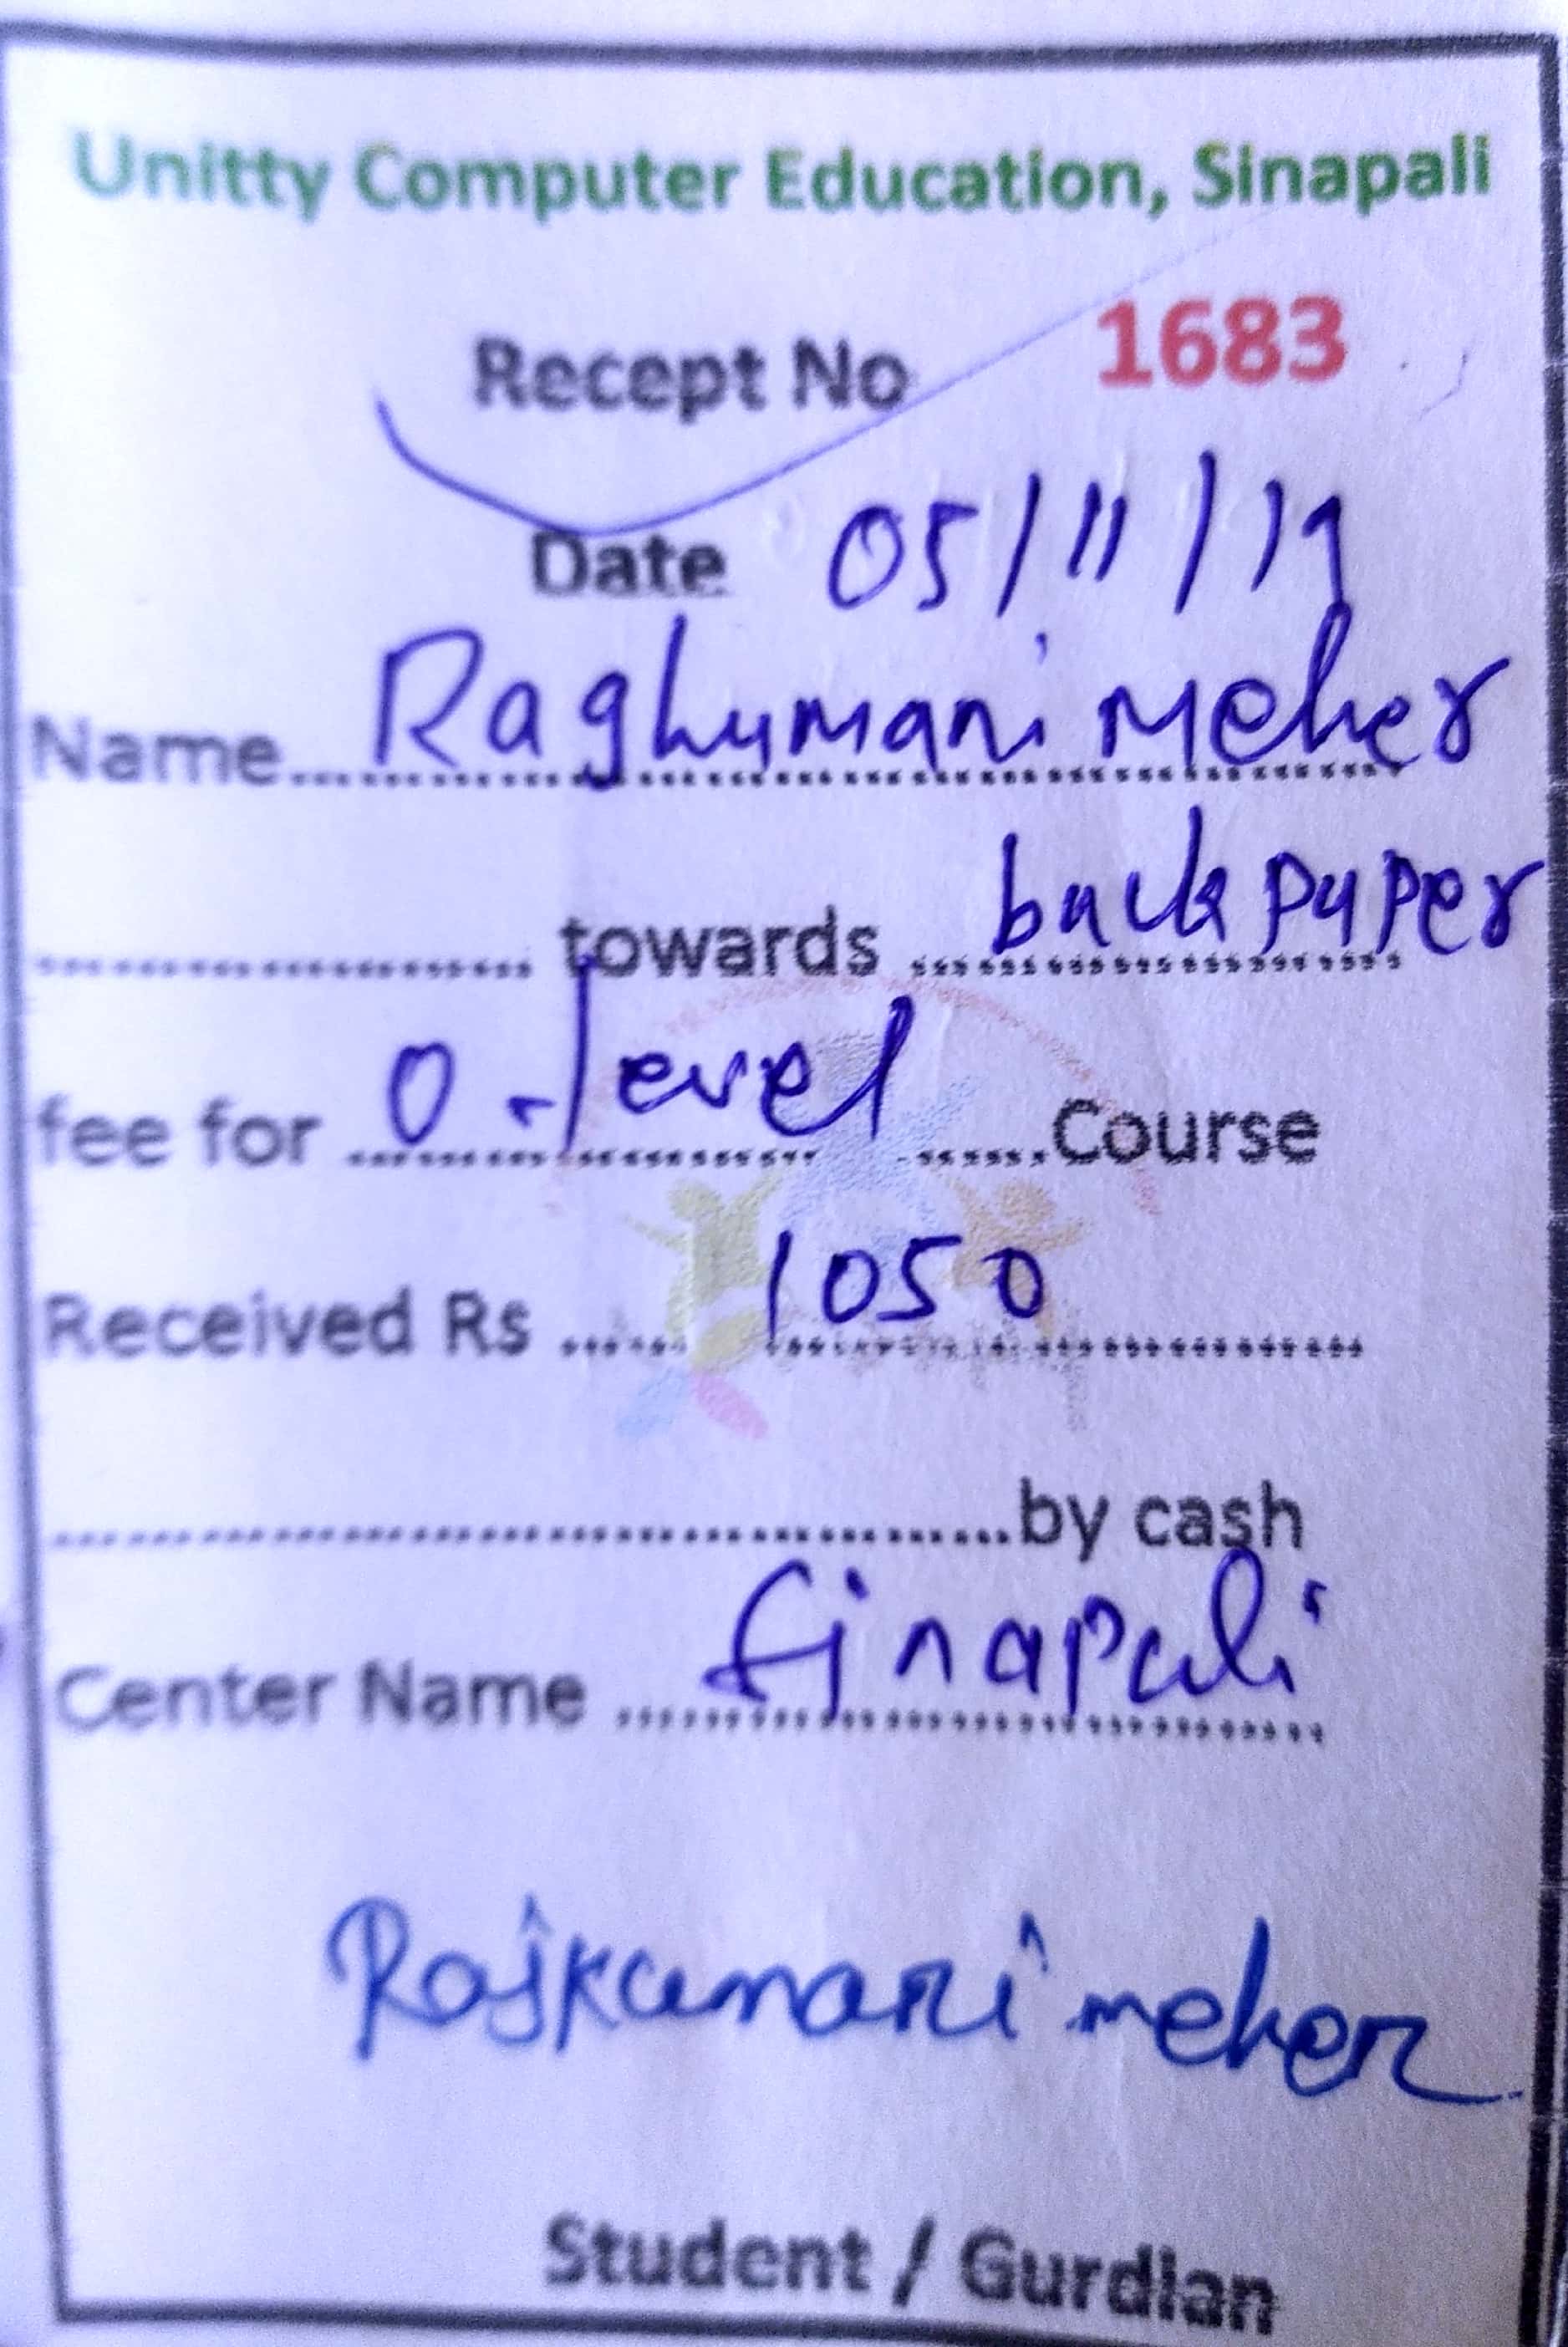 Unitty Computer Education, Sinapali
Recept No 1683
Date 05/11/19
Name...Raghumani Meher
............ towards ...back paper
fee for ...O-level......Course
Received Rs ...... 1050 ............
............by cash
Center Name ...Sinapali
Rajkumari meher
Student / Gurdian